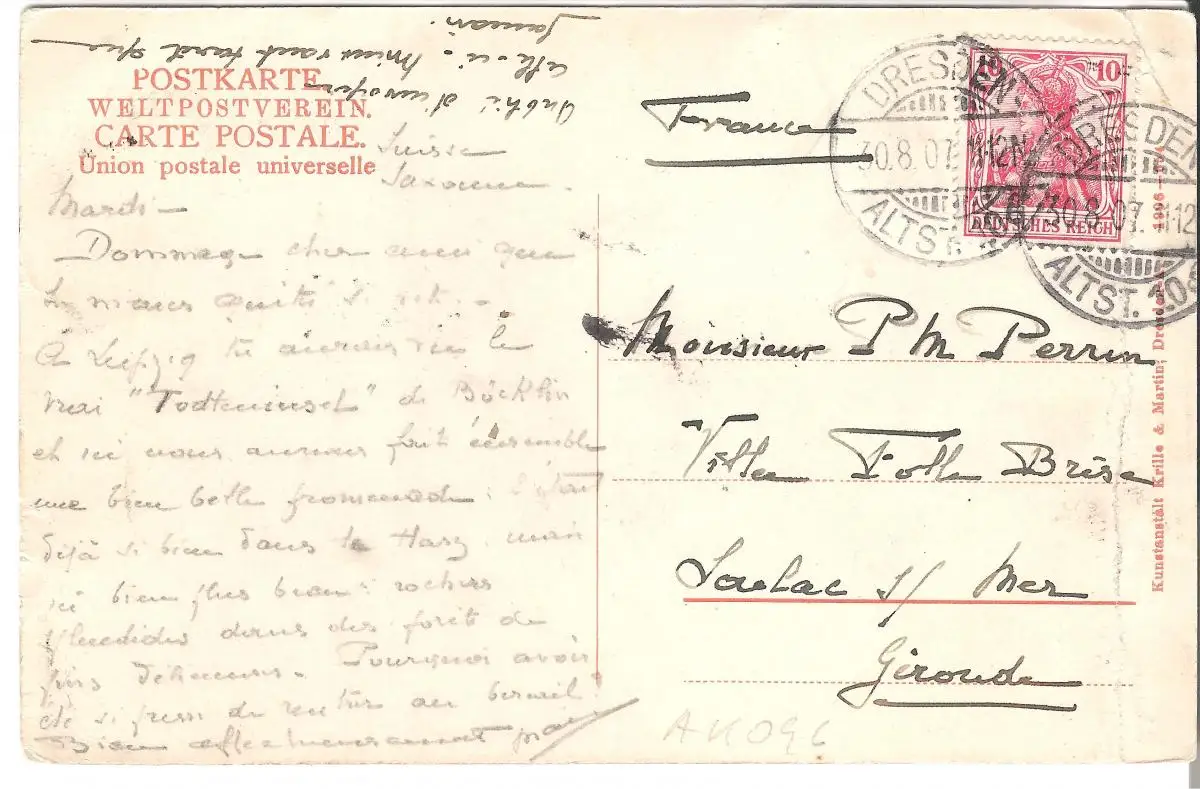 POSTKARTE
WELTPOSTVEREIN.
CARTE POSTALE.
Union postale universelle
Oublié d'envoyer
celle-ci. Maintenant tard que
jamais.
Suisse
Saxonne.
Mardi -
Dommage cher ami que
tu quitté si
A Leipzig tu aurais vu le
vrai "Todteninsel" de Böcklin
et ici nous aurions fait ensemble
une bien belle promenade: c'était
déjà si bien dans le Harz, mais
ici bien plus beau: rochers
splendides dans des forêts de
pins délicieuses. Pourquoi avoir
été si pressé de rentrer au bercail?
Bien affectueusement
France
DRESDEN
30.8.07. 11-12N
ALTST.
10 10
DEUTSCHES REICH
DRESDEN
30.8.07. 11-12
ALTST. 10
Monsieur P M Perrin
Villa Folle Brise
Soulac s/ Mer
Gironde
AK096
Kunstanstalt Krille & Martin, Dresden